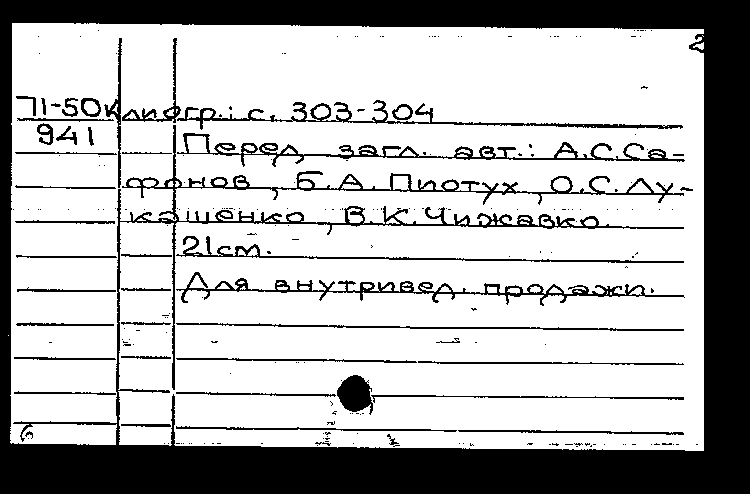 2
71-50к лиогр.: с. 303-304
941
Перед загл. авт.: А.С.Са-
фонов, Б.А. Пиотух, О.С.Лу-
кашенко, В.К.Чижавко.
21см.
Для внутривед. продажи.
6